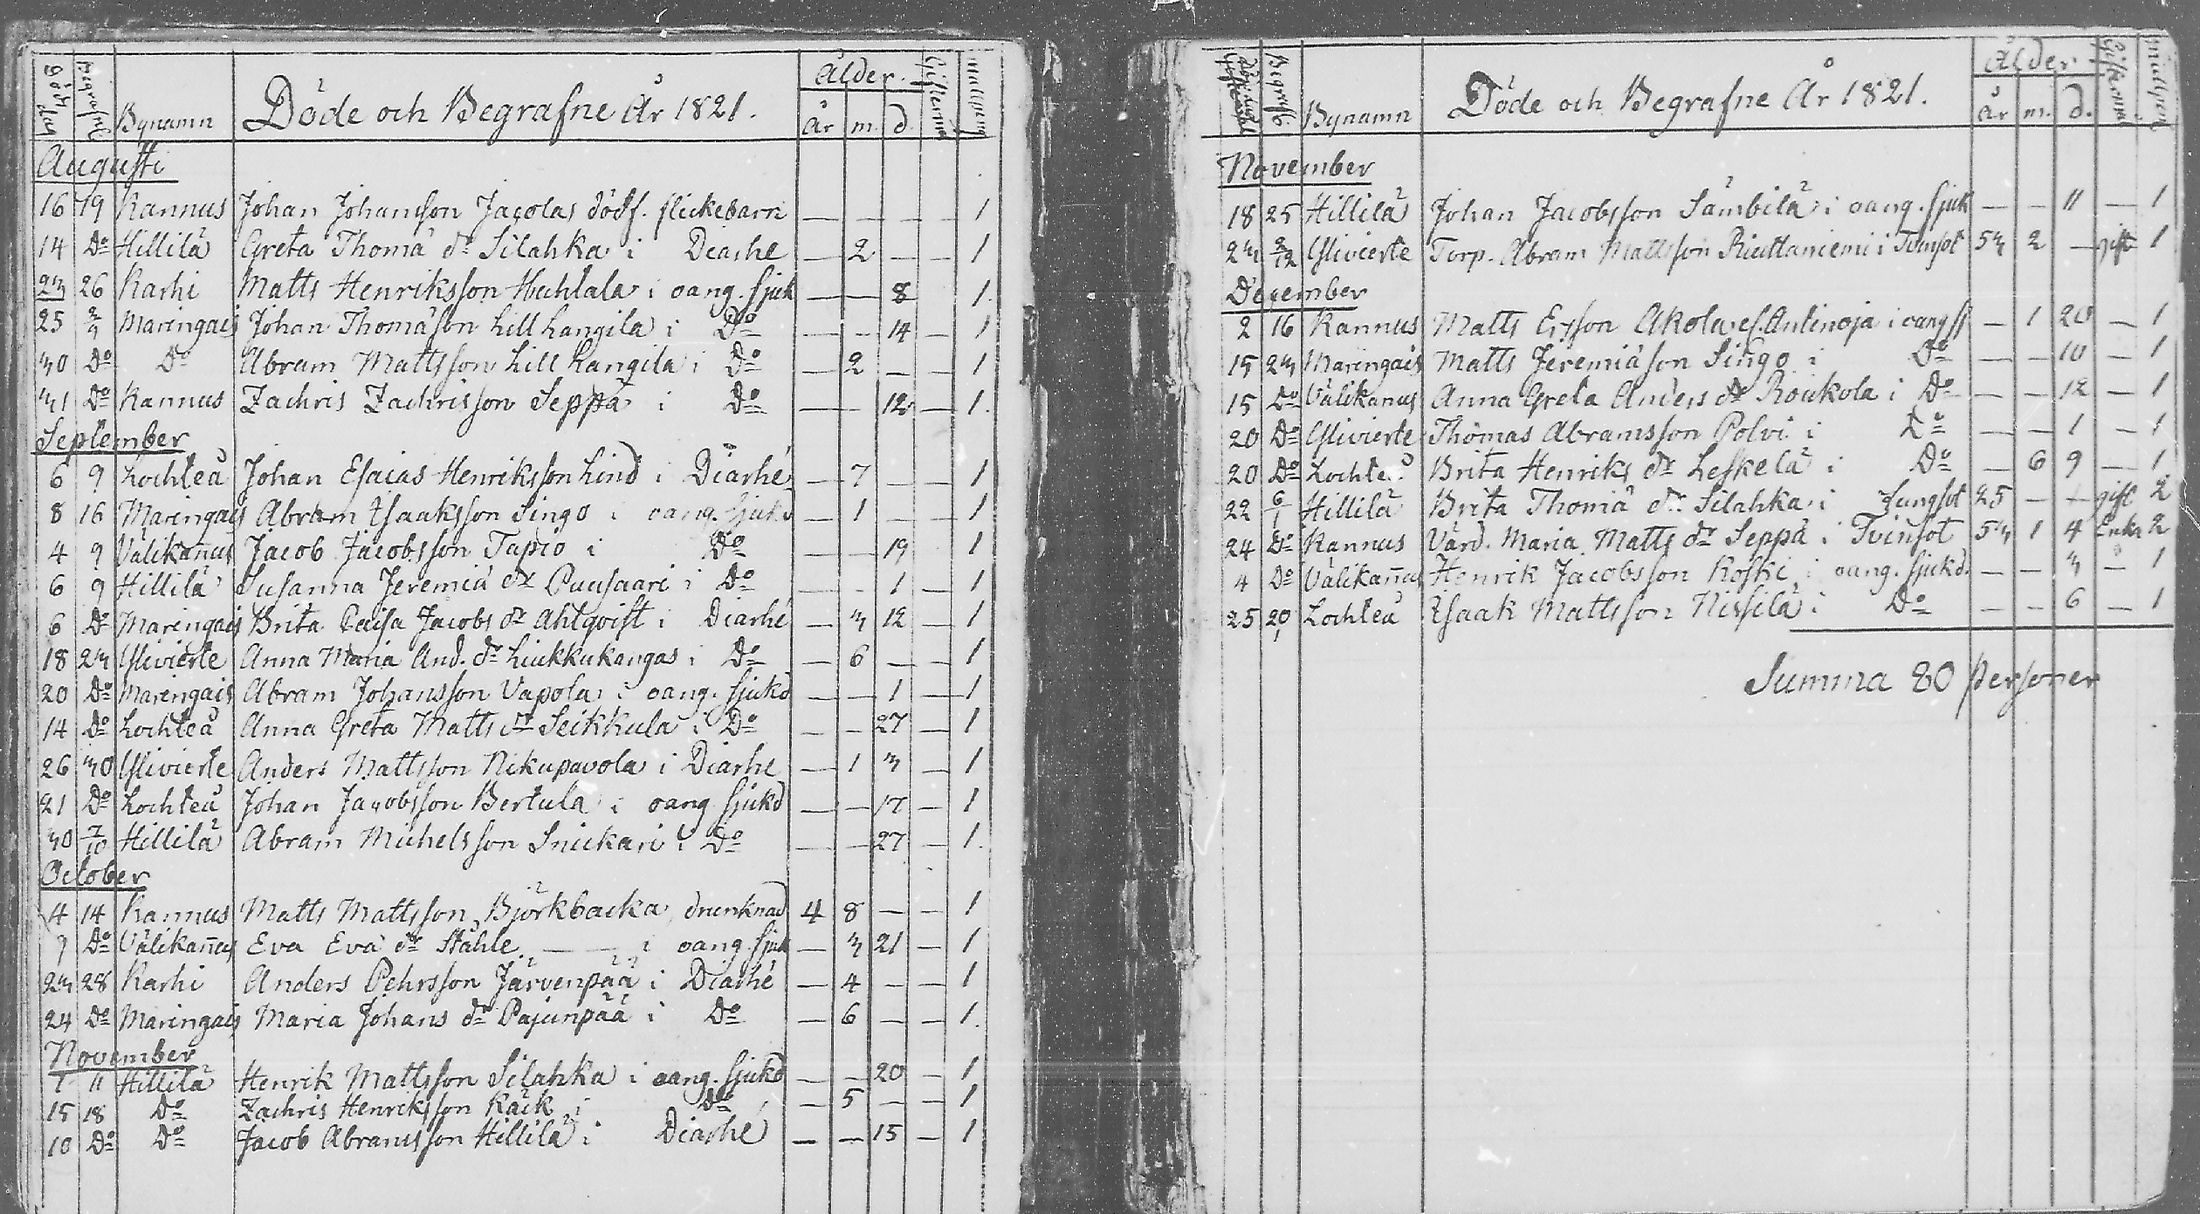 Död dag Begrafne Bynamn Döde och Begrafne År 1821. Ålder. år m. d.
Augusti
16 19 Kannus Johan Johansson Jacolas dödf. flickebarn — — — — 1
14 Do Hillilä Greta Thomä dr Silahka i Diarhe — 2 — — 1
23 26 Karhi Matts Henriksson Huhtala i oang. sjuk — — 8 1
25 2/9 Maringais Johan Thomäson Lill Kangila i Do — — 14 — 1
30 Do Do Abram Mattsson Lill Kangila i Do — 2 — — 1
31 Do Kannus Zachris Zachrisson Seppä i Do — — 12 — 1.
September
6 9 Lochteå Johan Esaias Henriksson Lind i Diarhé — 7 — — 1
8 16 Maringais Abram Isaaksson Singo i oang. sjukd — 1 — — 1
4 9 Välikañus Jacob Jacobsson Tapio i Do — — 19 1
6 9 Hillilä Susanna Jeremiä dr Puusaari i Do — — 1 — 1
6 Do Maringais Brita Caisa Jacobs dr Ahlqvist i Diarhé — 3 12 — 1
18 23 Ylivierte Anna Maria And. dr Liukkukangas i Do — 6 — — 1
20 Do Maringais Abram Johansson Vapola i oang. sjukd — — 1 — 1
14 Do Lochteå Anna Greta Matts dr Seikkula i Do — — 27 — 1
26 30 Ylivierte Anders Mattsson Nikupavola i Diarhe — 1 3 — 1
21 Do Lochteå Johan Jacobsson Bertula i oang sjukd — — 17 — 1
30 7/10 Hillilä Abram Michelsson Snickari i Do — — 27 — 1.
October
4 14 Kannus Matts Mattsson Björkbacka, drunknad 4 8 — — 1
7 Do Välikañus Eva Eva dr Ståhle — i oang. sjuk — 3 21 — 1
23 28 Karhi Anders Pehrsson Järvenpää i Diarhé — 4 — — 1
24 Do Maringais Maria Johans dr Pajunpää i Do — 6 — — 1.
November
1 11 Hillilä Henrik Mattsson Silahka i oang. sjukd — — 20 — 1
15 18 Do Zachris Henriksson Käck i Do — 5 — — 1
10 Do Do Jacob Abramsson Hillilä i Diarhé — — 15 — 1
Bynamn Döde och Begrafne År 1821. Ålder. år m. d.
November
18 25 Hillilä Johan Jacobsson Sämbilä i oang. sjuk — — 11 — 1
23 2/12 Ylivierte Torp. Abram Mattsson Riuttaniemi i Tvinsot 53 2 — gift 1
December
2 16 Kannus Matts Ersson Akola el. Antinoja i oang sj — 1 20 — 1
15 23 Maringais Matts Jeremiäson Singo i Do — — 10 — 1
15 Do Välikanus Anna Greta Anders dr Roukola i Do — — 12 — 1
20 Do Ylivierte Thomas Abramsson Polvi i Do — — 1 — 1
20 Do Lochteå Brita Henriks dr Leskelä i Do — 6 9 — 1
22 6/1 Hillilä Brita Thomä dr Silahka i Lungsot 25 — — gift 2
24 Do Kannus Värd. Maria Matts dr Seppä i Tvinsot 53 1 4 Enka 2
4 Do Välikañus Henrik Jacobsson Koski i oang. sjukd. — — 3 — 1
25 20/1 Lochteå Isaak Mattsson Nissilä i Do — — 6 — 1
Summa 80 Personer